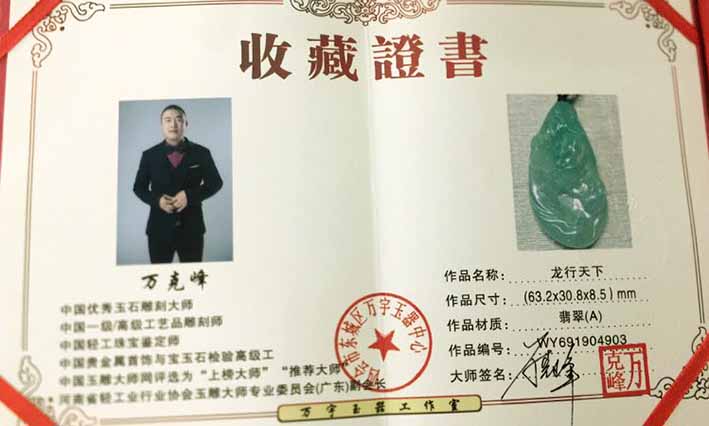 收藏證書
万克峰
中国优秀玉石雕刻大师
中国一级/高级工艺品雕刻师
中国轻工珠宝鉴定师
中国贵金属首饰与宝玉石检验高级工
中国玉雕大师网评选为“上榜大师”“推荐大师”
河南省轻工业行业协会玉雕大师专业委员会(广东)副会长
作品名称: 龙行天下
作品尺寸: (63.2x30.8x8.5) mm
作品材质: 翡翠(A)
作品编号: WY691904903
大师签名:
万克峰
四会市东城区万宇玉器中心
万宇玉器工作室